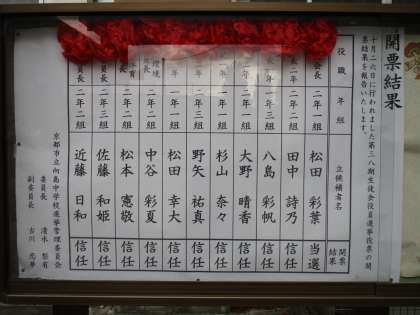 開票結果
十月二六日に行われました第三八期生徒会役員選挙投票の開
票結果を報告いたします。
役職 年 組 立候補者名 開票結果
会長 二年一組 松田 彩葉 当選
二年二組 田中 詩乃 信任
一年一組 八島 彩帆 信任
一年二組 大野 晴香 信任
一年一組 杉山 奈々 信任
年 二年三組 野矢 祐真 信任
年 一年一組 松田 幸大 信任
環境 員長 二年二組 中谷 彩夏 信任
体育 員長 二年二組 松本 憲敬 信任
員長 二年三組 佐藤 和姫 信任
員長 二年二組 近藤 日和 信任
京都市立向島中学校選挙管理委員会
委員長 清水 梨有
副委員長 吉川